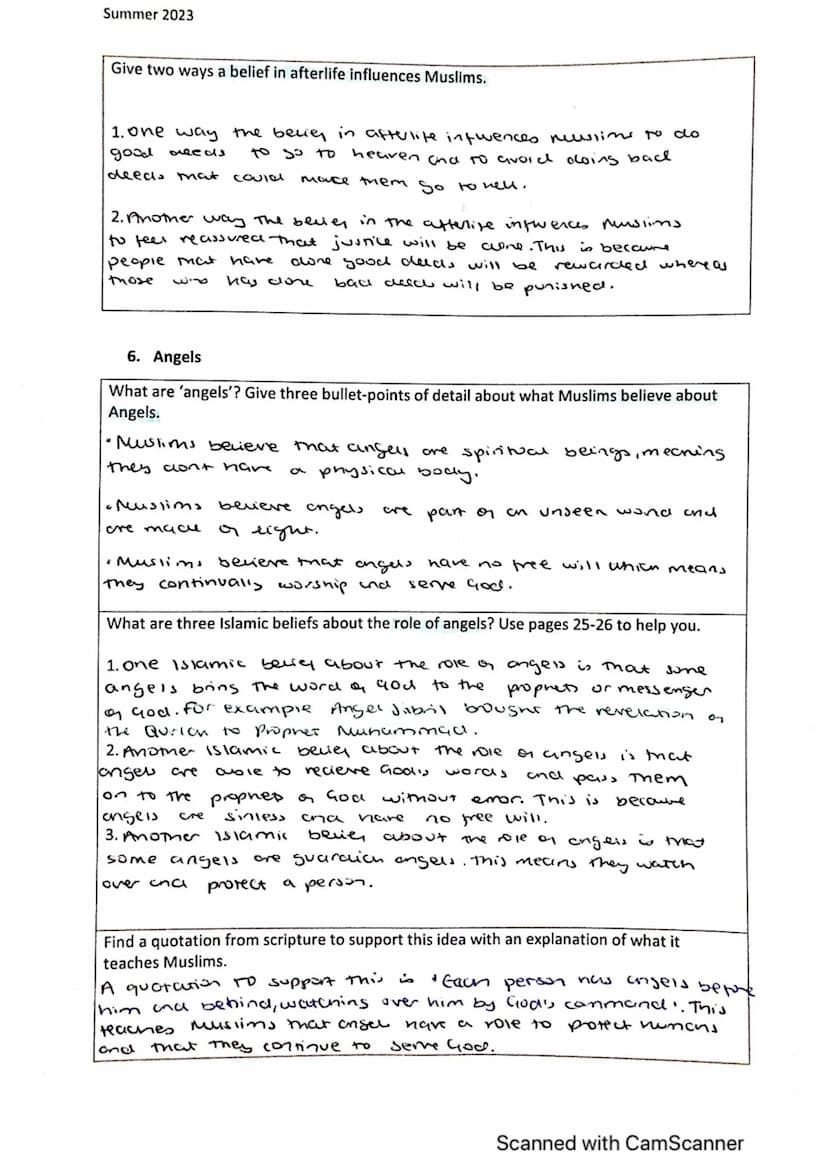 Summer 2023
Give two ways a belief in afterlife influences Muslims.
1. One way the belief in afterlife influences Muslims to do
good deeds to go to heaven and to avoid doing bad
deeds that could make them go to hell.
2. Another way the belief in the afterlife influences Muslims
to feel reassured that justice will be done. This is because
people that have done good deeds will be rewarded whereas
those who has done bad deeds will be punished.
6. Angels
What are 'angels'? Give three bullet-points of detail about what Muslims believe about
Angels.
• Muslims believe that angels are spiritual beings, meaning
they dont have a physical body.
• Muslims believe angels are part of an unseen world and
are made of light.
• Muslims believe that angels have no free will which means
they continually worship and serve God.
What are three Islamic beliefs about the role of angels? Use pages 25-26 to help you.
1. One Islamic belief about the role of angels is that some
angels bring the word of God to the prophets or messenger
of God. For example Angel Jabril bought the revelation of
the Qur'an to Prophet Muhammad.
2. Another Islamic belief about the role of angels is that
angels are able to recieve God's words and pass them
on to the prophets of God without error. This is because
angels are sinless and have no free will.
3. Another Islamic belief about the role of angels is that
some angels are guardian angels. This means they watch
over and protect a person.
Find a quotation from scripture to support this idea with an explanation of what it
teaches Muslims.
A quotation to support this is 'Each person has angels before
him and behind, watching over him by God's command'. This
teaches Muslims that angel have a role to protect humans
and that they continue to serve God.
Scanned with CamScanner